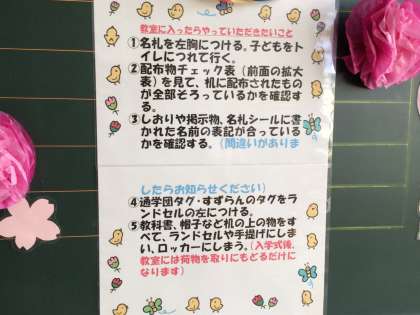 教室に入ったらやっていただきたいこと
①名札を左胸につける。子どもをト
イレにつれて行く。
②配布物チェック表（前面の拡大
表）を見て、机に配布されたもの
が全部そろっているかを確認す
る。
③しおりや掲示物、名札シールに書
かれた名前の表記が合っている
かを確認する。（間違いがありま
したらお知らせください）
④通学団タグ・すずらんのタグをラ
ンドセルの左につける。
⑤教科書、帽子など机の上の物をす
べて、ランドセルや手提げにしま
い、ロッカーにしまう。（入学式後、
教室には荷物を取りにもどるだけに
なります）